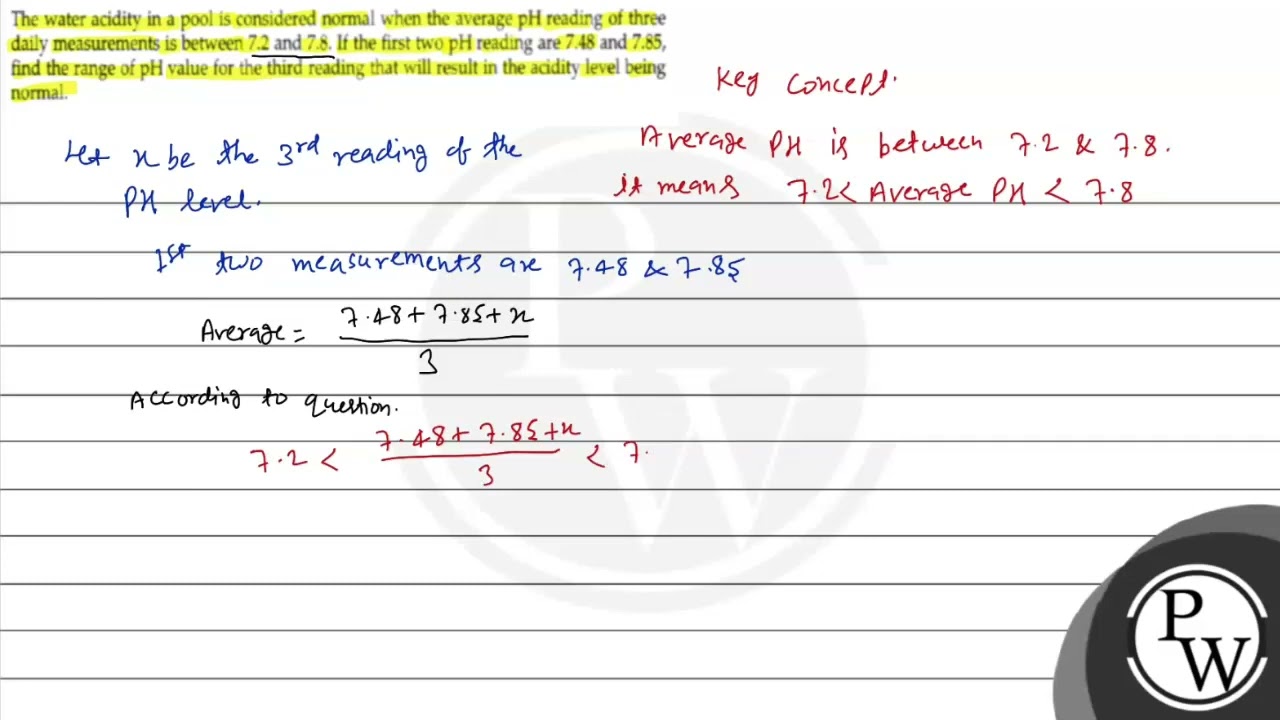 The water acidity in a pool is considered normal when the average pH reading of three
daily measurements is between 7.2 and 7.8. If the first two pH reading are 7.48 and 7.85,
find the range of pH value for the third reading that will result in the acidity level being
normal.
Key concept.
Average PH is between 7.2 & 7.8.
it means 7.2 < Average PH < 7.8
Let x be the 3rd reading of the
PH level.
Ist two measurements are 7.48 & 7.85
Average = 7.48 + 7.85 + x
3
According to question.
7.2 < 7.48 + 7.85 + x < 7.
3
PW
PW